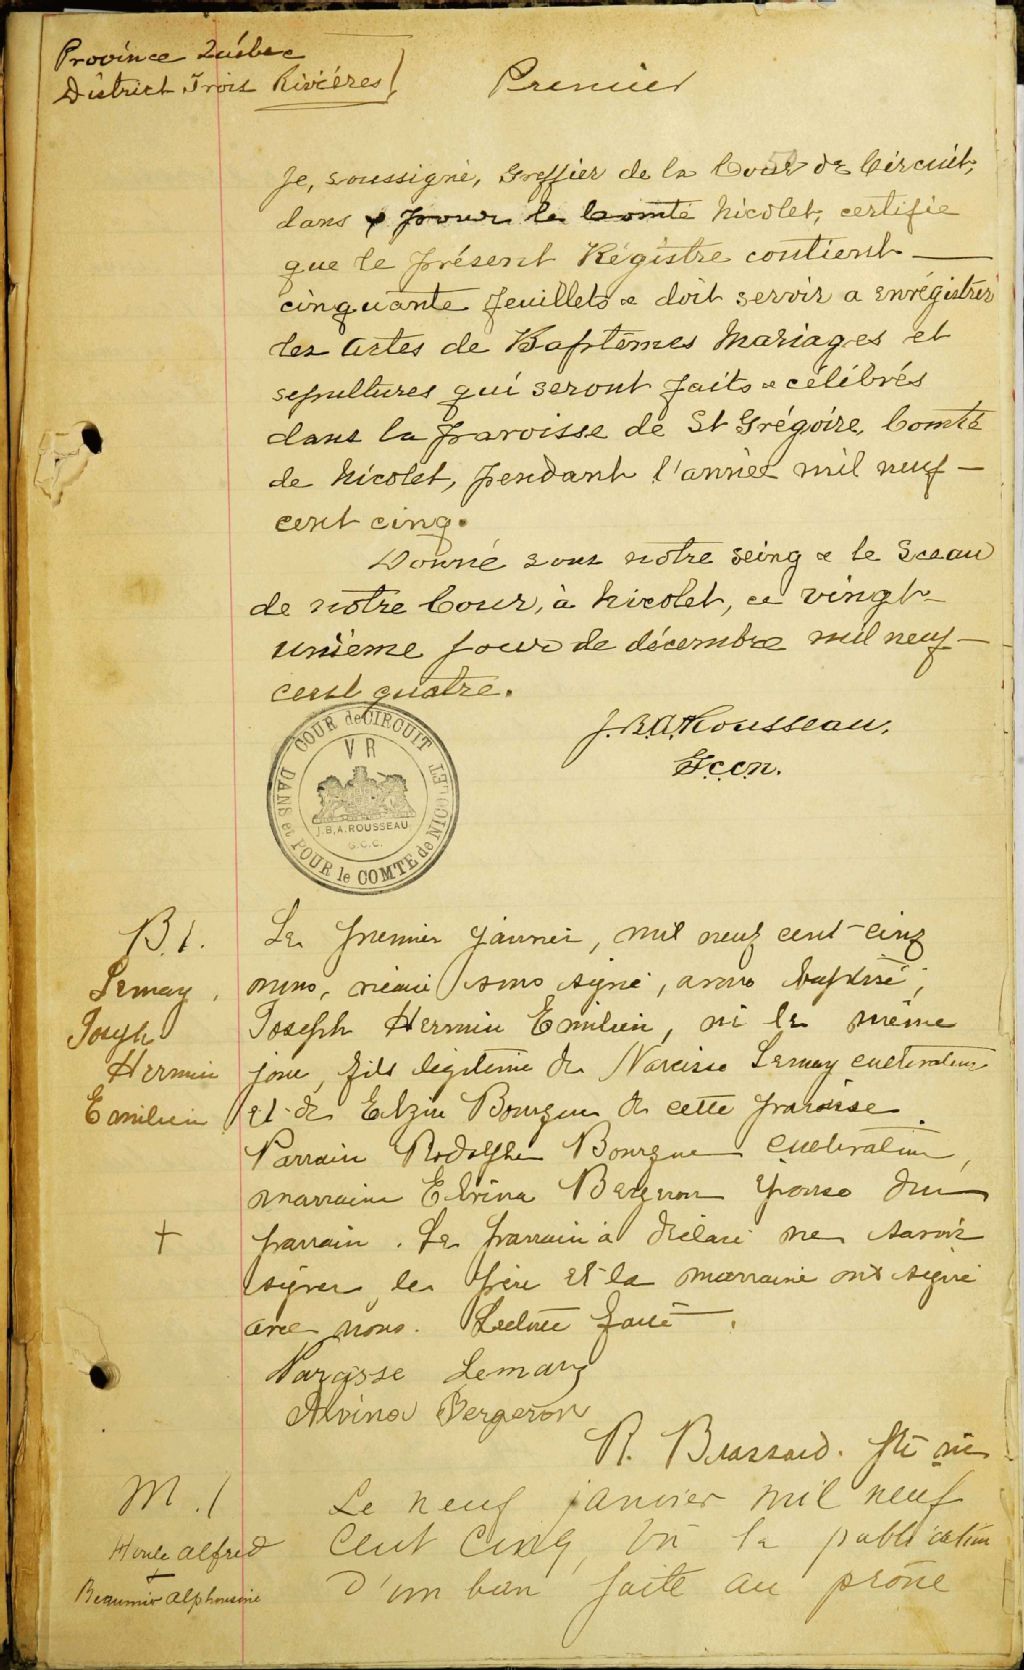 Province Québec
District Trois Rivières
Premier
Je, soussigné, Greffier de la Cour de Circuit,
dans & pour le Comté Nicolet, certifie
que le présent Régistre contient
cinquante feuillets & doit servir a enrégistrer
les Actes de Baptêmes Mariages et
sepultures qui seront faits & célébrés
dans la paroisse de St Grégoire, Comté
de Nicolet, pendant l'année mil neuf
cent cinq.
Donné sous notre seing & le Sceau
de notre Cour, à Nicolet, ce vingt-
unième jour de décembre mil neuf
cent quatre.
J.B.A. Rousseau,
G.C.C.N.
COUR de CIRCUIT
DANS et POUR le COMTÉ de NICOLET
V R
J.B.A. ROUSSEAU
G.C.C.
B.1.
Lemay,
Joseph
Hermin
Emilien
+
Le premier janvier, mil neuf cent-cinq
nous, vicaire sous signé, avons baptisé,
Joseph Hermin Emilien, né le même
jour, fils légitime de Narcisse Lemay cultivateur
et de Elzire Bourque de cette paroisse.
Parrain Rodolphe Bourque cultivateur,
marraine Elvina Bergeron épouse du
parrain. Le parrain a déclaré ne savoir
signer, le père et la marraine ont signé
avec nous. Lecture faite.
Narcisse Lemay
Alvina Bergeron
R. Brassard. Ptre vic
M.1
Houle Alfred
+
Beaumier Alphonsine
Le neuf janvier mil neuf
cent cinq, vu la publication
d'un ban faite au prône